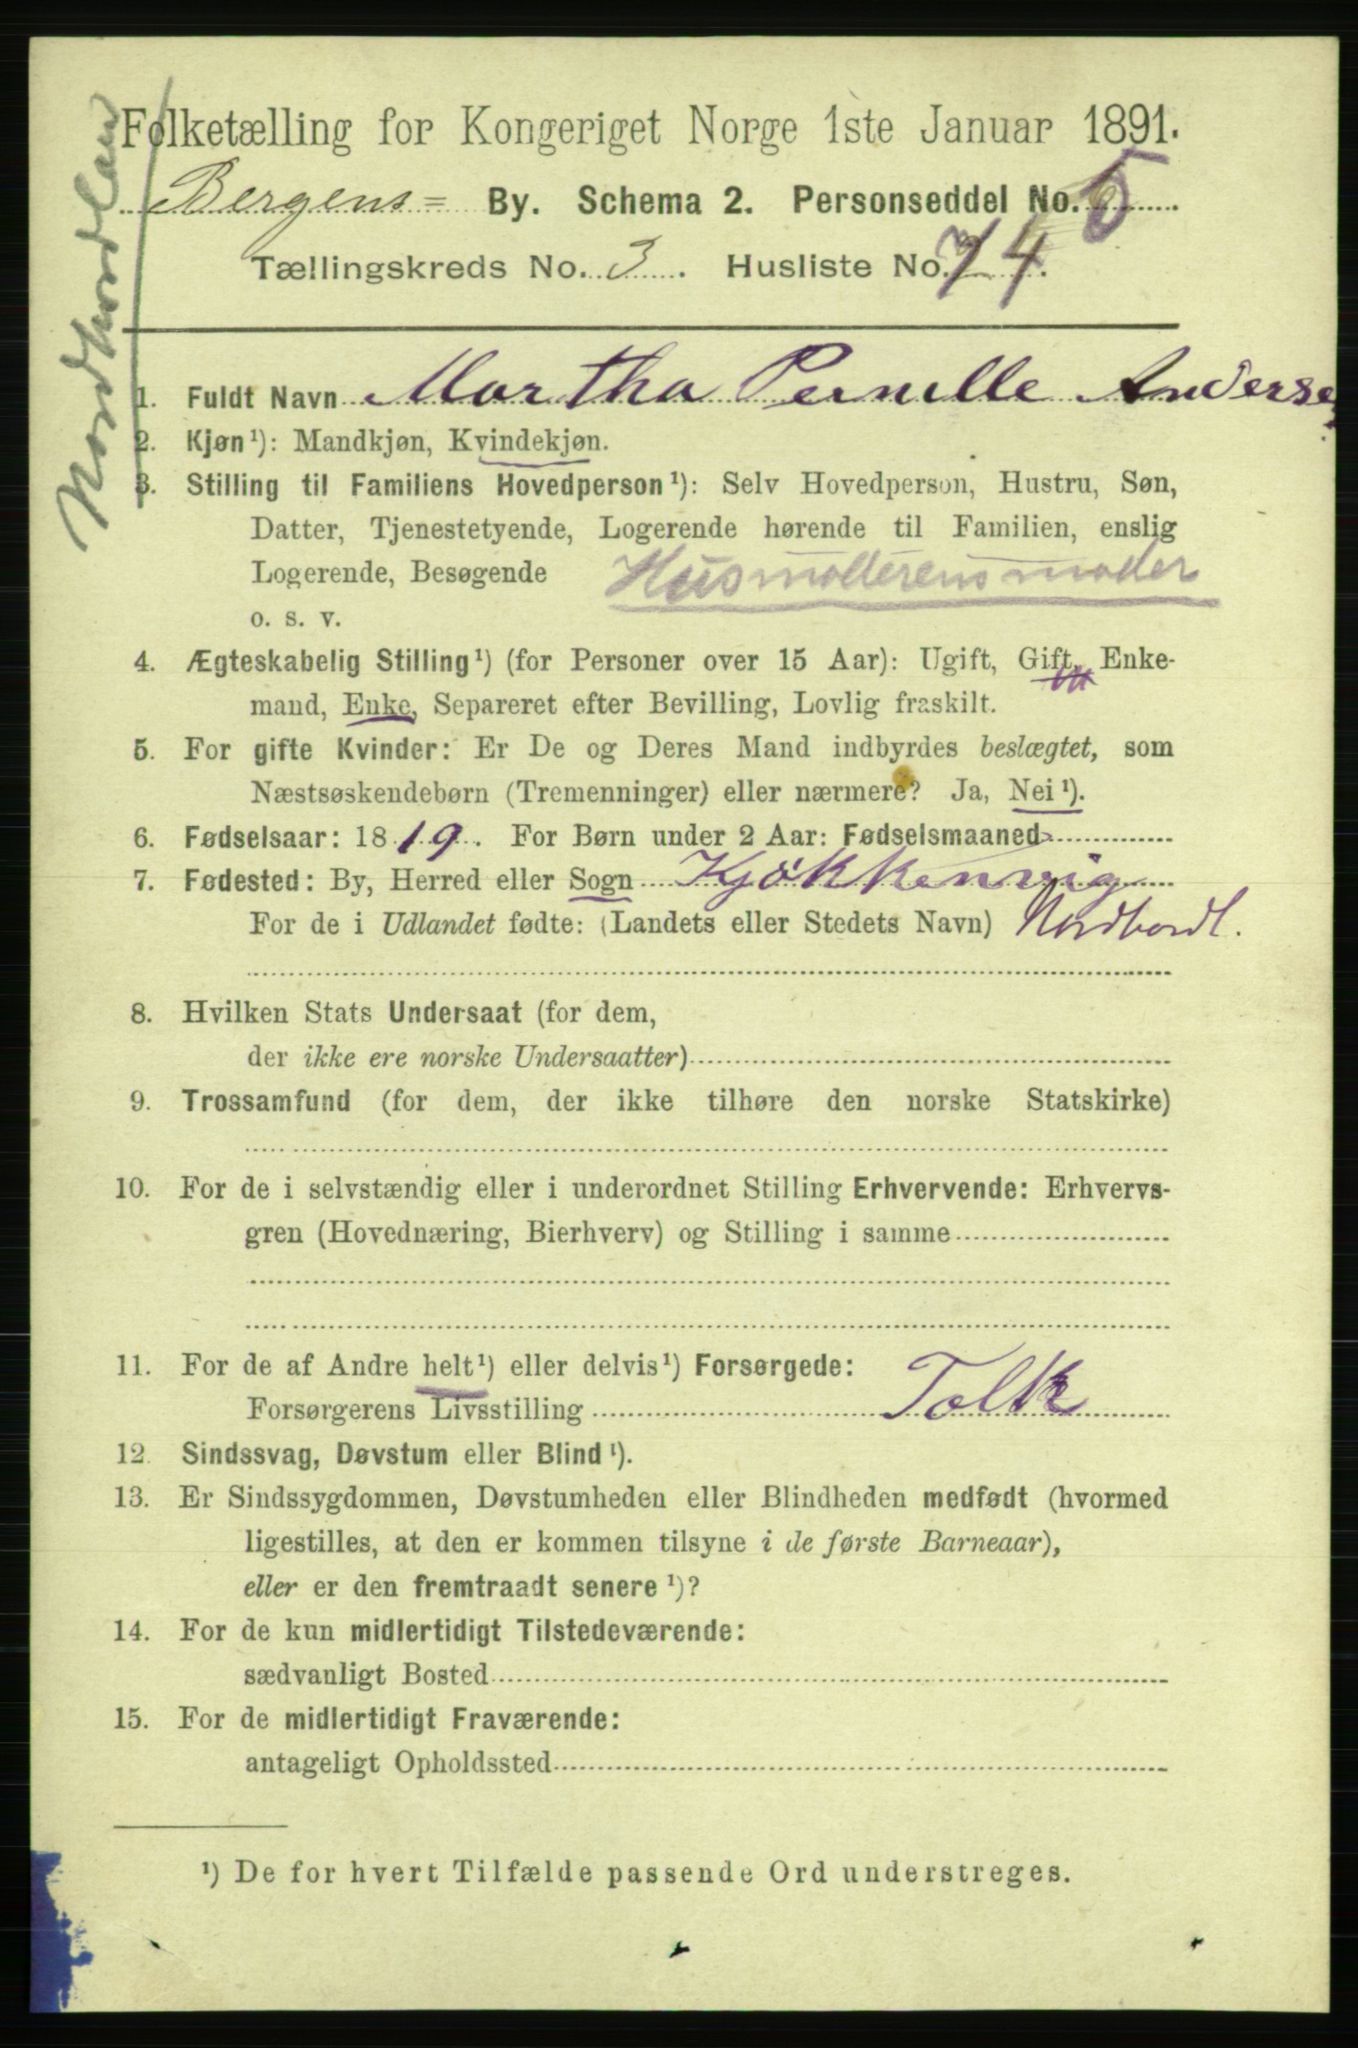 Nordhordlan
Folketælling for Kongeriget Norge 1ste Januar 1891.
Bergens= By. Schema 2. Personseddel No. 5
Tællingskreds No. 3. Husliste No. 74.
1. Fuldt Navn Martha Pernille Anderse
2. Kjøn¹): Mandkjøn, Kvindekjøn.
3. Stilling til Familiens Hovedperson¹): Selv Hovedperson, Hustru, Søn,
Datter, Tjenestetyende, Logerende hørende til Familien, enslig
Logerende, Besøgende Husmoderens moder
o. s. v.
4. Ægteskabelig Stilling¹) (for Personer over 15 Aar): Ugift, Gift, Enke-
mand, Enke, Separeret efter Bevilling, Lovlig fraskilt.
5. For gifte Kvinder: Er De og Deres Mand indbyrdes beslægtet, som
Næstsøskendebørn (Tremenninger) eller nærmere? Ja, Nei¹).
6. Fødselsaar: 1819. For Børn under 2 Aar: Fødselsmaaned
7. Fødested: By, Herred eller Sogn Kjøkkenvig
For de i Udlandet fødte: (Landets eller Stedets Navn) Nordhordl.
8. Hvilken Stats Undersaat (for dem,
der ikke ere norske Undersaatter)
9. Trossamfund (for dem, der ikke tilhøre den norske Statskirke)
10. For de i selvstændig eller i underordnet Stilling Erhvervende: Erhvervs-
gren (Hovednæring, Bierhverv) og Stilling i samme
11. For de af Andre helt¹) eller delvis¹) Forsørgede:
Forsørgerens Livsstilling Tolk
12. Sindssvag, Døvstum eller Blind¹).
13. Er Sindssygdommen, Døvstumheden eller Blindheden medfødt (hvormed
ligestilles, at den er kommen tilsyne i de første Barneaar),
eller er den fremtraadt senere¹)?
14. For de kun midlertidigt Tilstedeværende:
sædvanligt Bosted
15. For de midlertidigt Fraværende:
antageligt Opholdssted
¹) De for hvert Tilfælde passende Ord understreges.